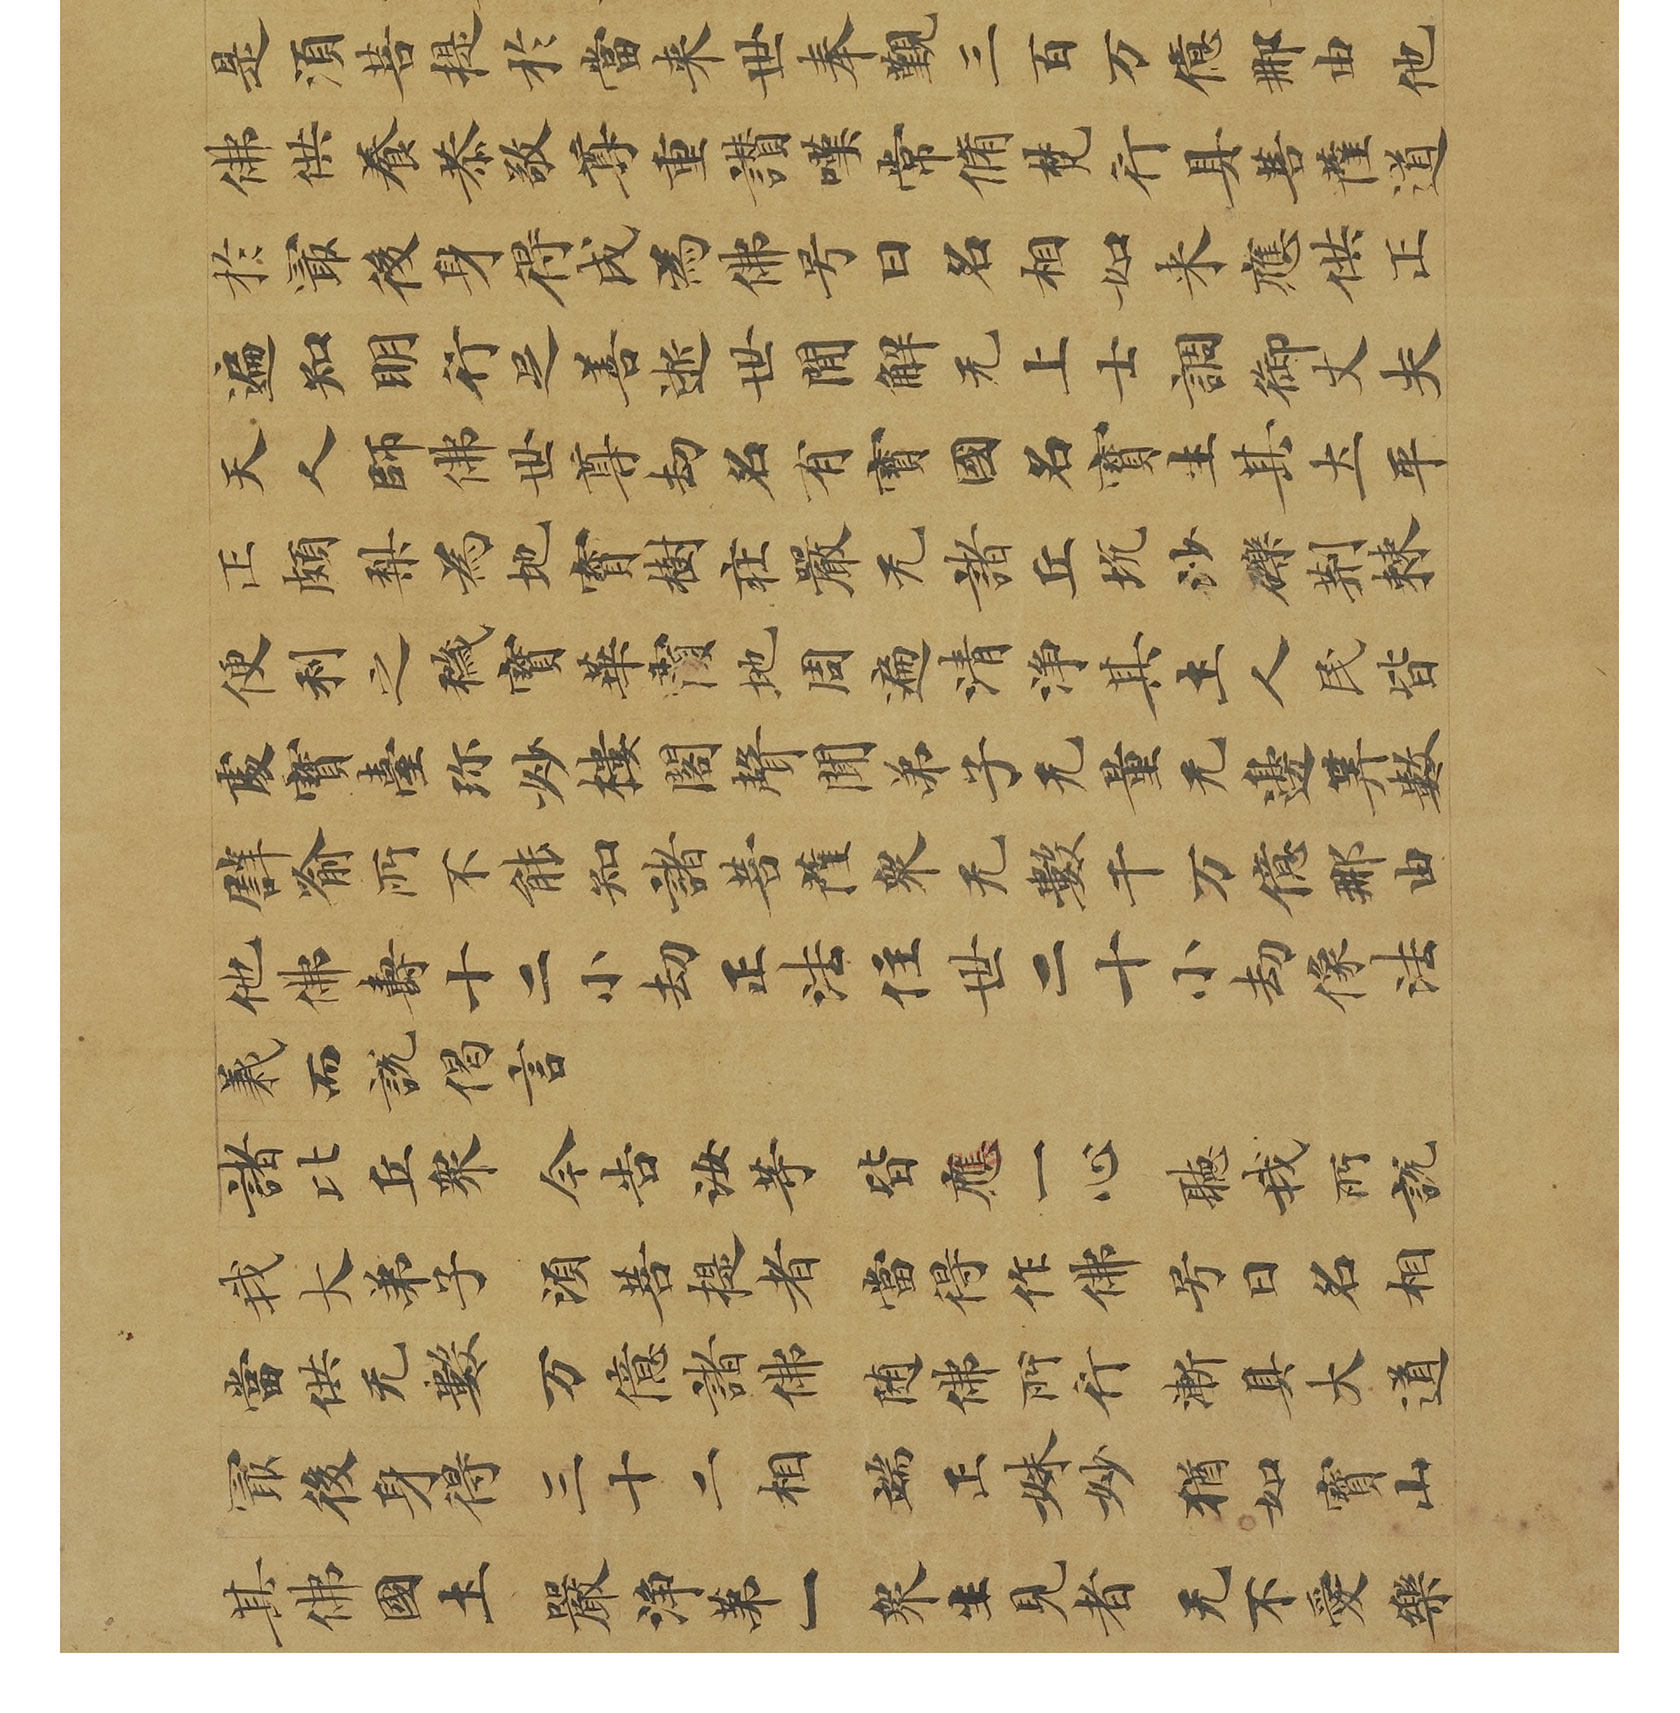 是須菩提於當来世奉覲三百万億那由他
佛供養恭敬尊重讃嘆常脩梵行具菩薩道
於冣後身得成為佛号曰名相如来應供正
遍知明行足善逝世間解无上士調御丈夫
天人師佛世尊劫名有寳國名寳生其土平
正頗梨為地寳樹莊嚴无諸丘坑沙礫荊棘
便利之穢寳華覆地周遍清浄其土人民皆
處寳臺珎妙樓閣聲聞弟子无量无邊筭數
譬喻所不能知諸菩薩衆无數千万億那由
他佛壽十二小劫正法住世二十小劫像法
義而説偈言
諸比丘衆 今告汝等 皆應一心 聽我所説
我大弟子 須菩提者 當得作佛 号曰名相
當供无數 万億諸佛 随佛所行 漸具大道
冣後身得 三十二相 端正姝妙 猶如寳山
其佛國土 嚴浄第一 衆生見者 无不愛樂